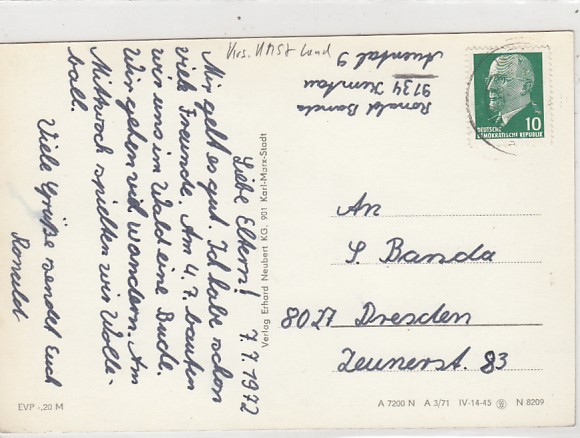 Krs. Land
Ronald Banda
9134 Kemtau
Auental 9
DEUTSCHE
DEMOKRATISCHE REPUBLIK
10
7.7.1972
Liebe Eltern!
Mir geht es gut. Ich habe schon
viele Freunde. Am 4.7. bauten
wir uns im Wald eine Bude.
Wir gehen viel wandern. Am
Mittwoch spielten wir Volle-
ball.
Viele Grüße sendet Euch
Ronald
Verlag Erhard Neubert KG, 901 Karl-Marx-Stadt
An
S. Banda
8027 Dresden
Zeunerst. 83
EVP -,20 M
A 7200 N A 3/71 IV-14-45 N 8209